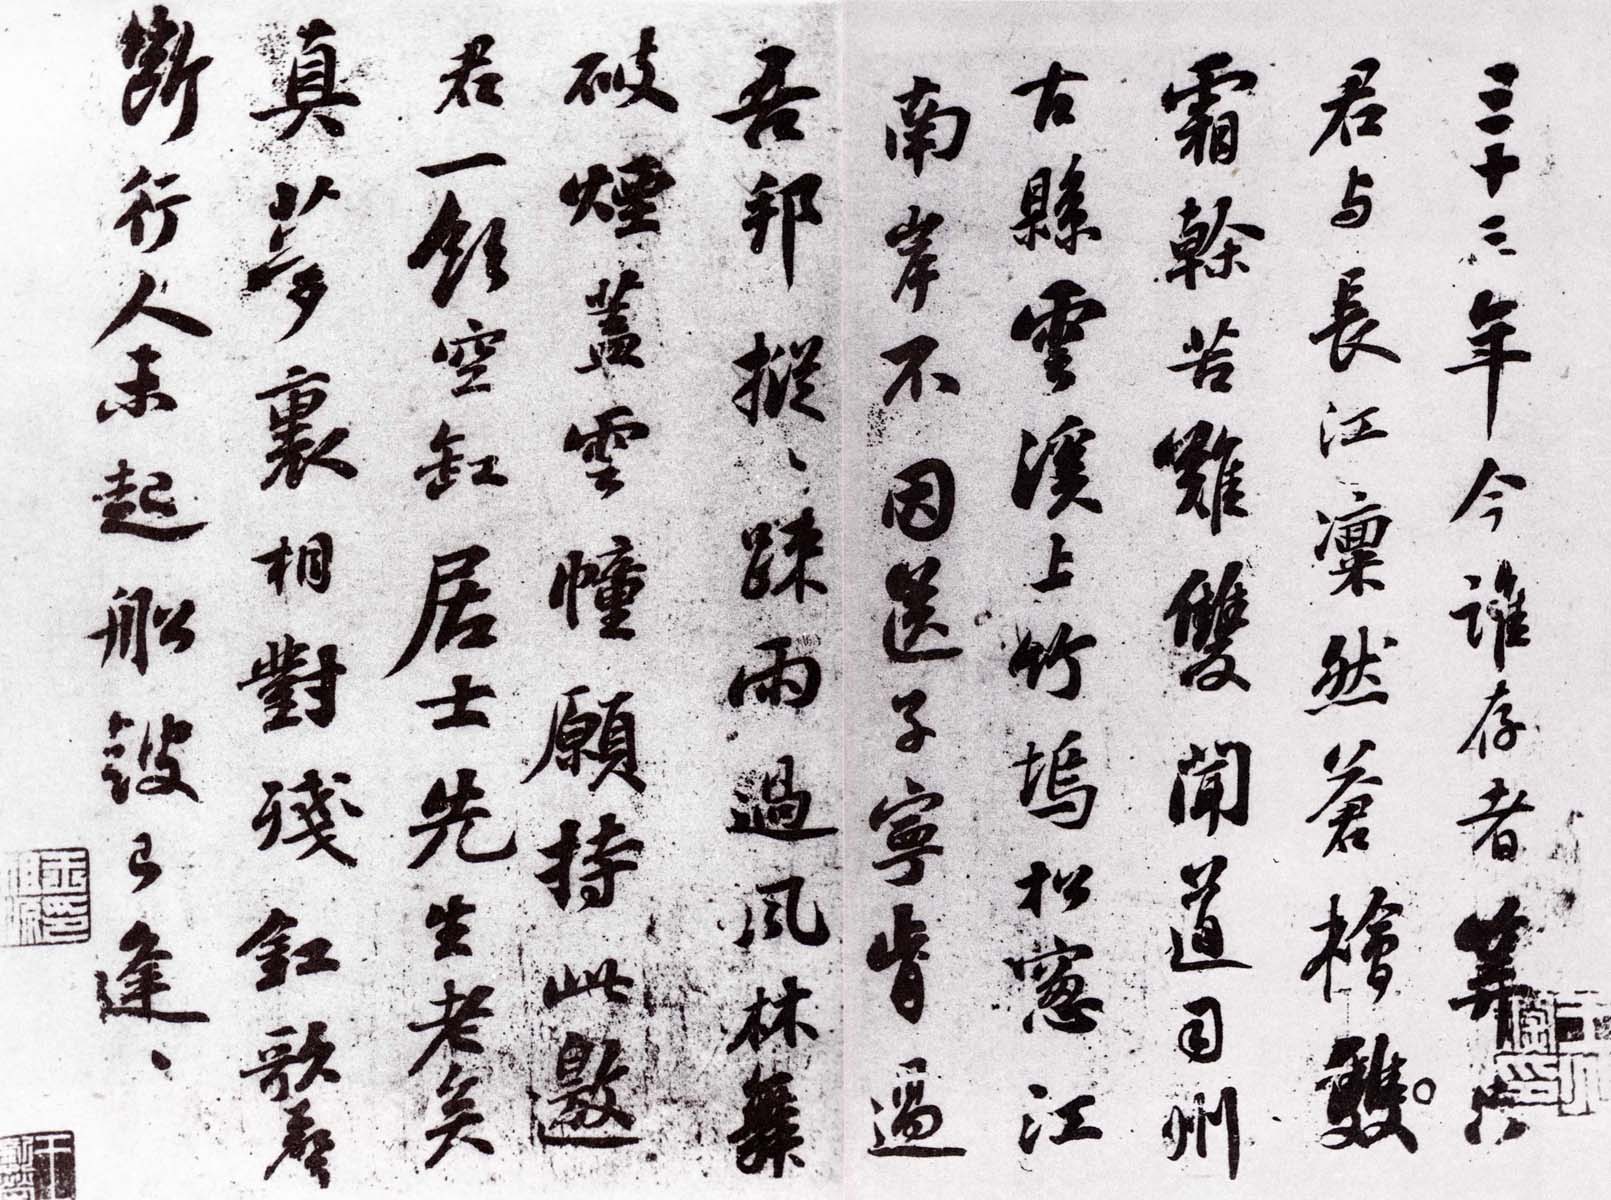 三十三年今誰存者算只
君与長江凜然蒼檜雙
霜幹苦難雙聞道司州
古縣雲溪上竹塢松窓江
南岸不因送子寧肯過
吾邦摐〻踈雨過風林舞
破煙蓋雲幢願持此邀
君一飲空缸居士先生老矣
真夢裏相對殘釭歌聲
斷行人未起船皷已逢〻